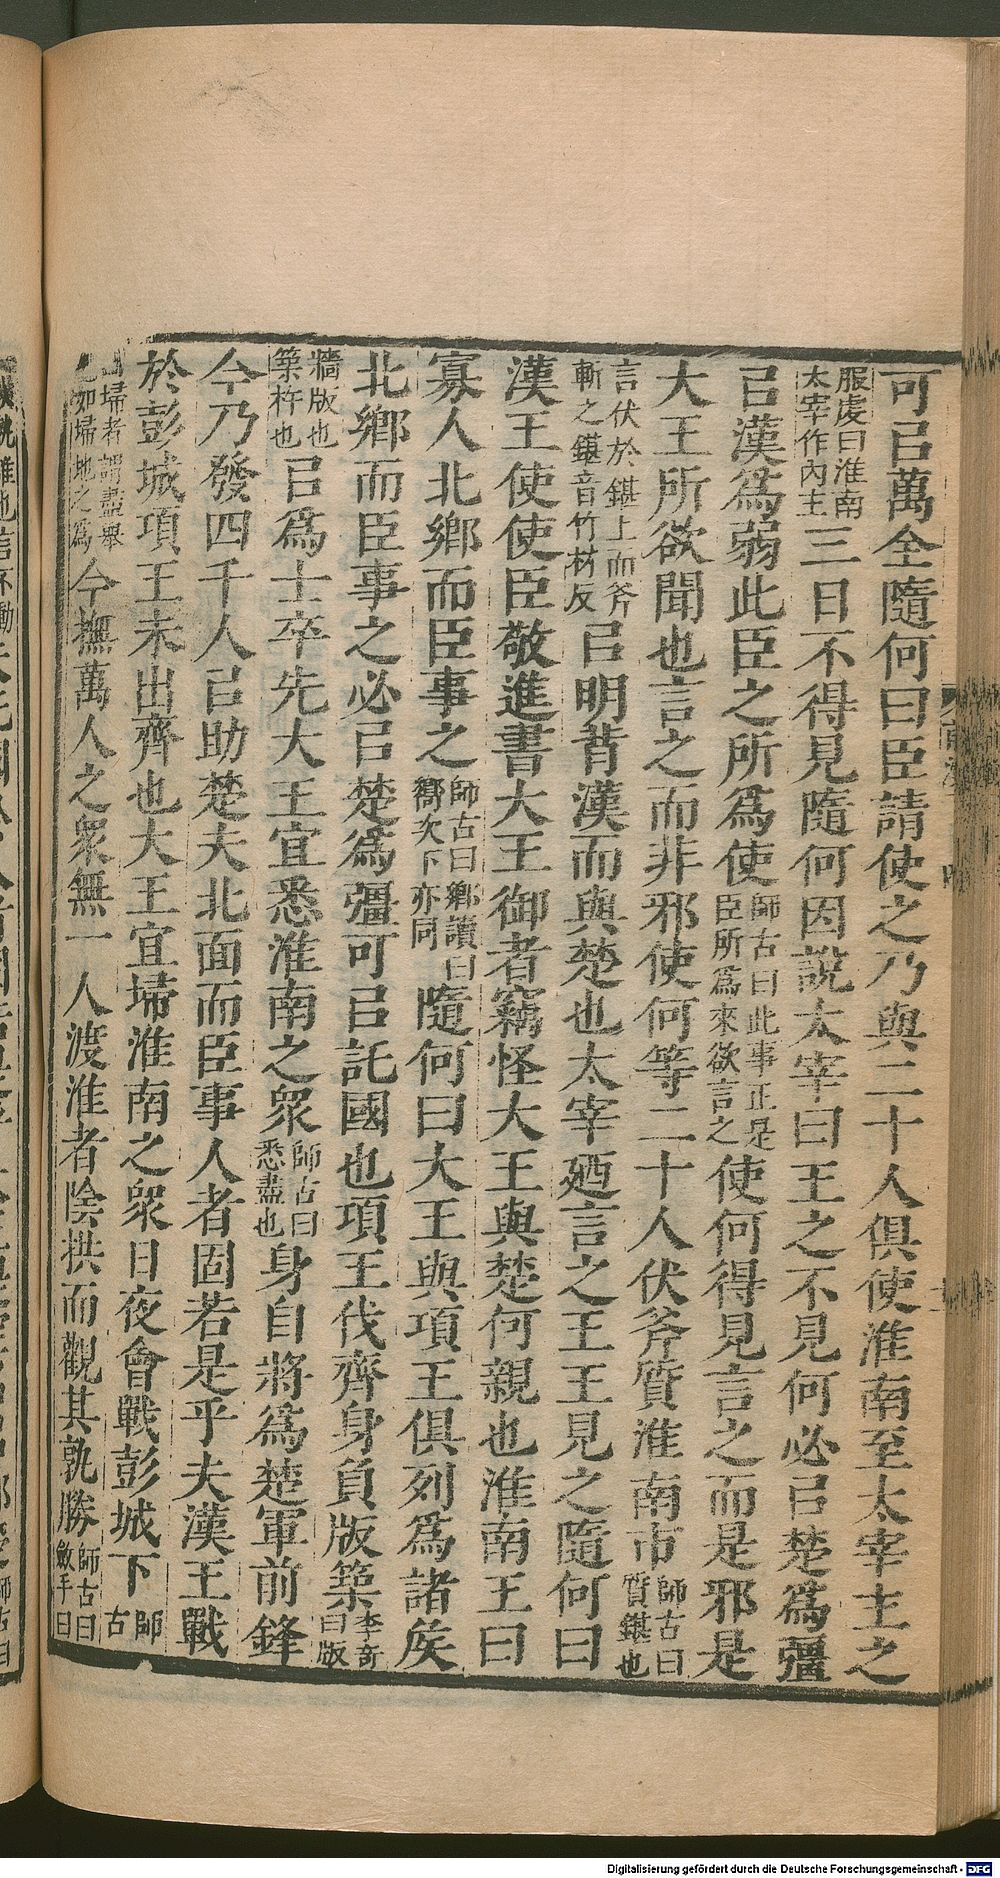 可㠯萬全隨何曰臣請使之乃與二十人俱使淮南至太宰主之
服虔曰淮南太宰作內主三日不得見隨何因說太宰曰王之不見何必㠯楚爲彊
㠯漢爲弱此臣之所爲使師古曰此事正是臣所爲來欲言之使何得見言之而是邪是
大王所欲聞也言之而非邪使何等二十人伏斧質淮南市師古曰質鍖也
言伏於鍖上而斧斬之鍖音竹林反㠯明背漢而與楚也太宰廼言之王王見之隨何曰
漢王使使臣敬進書大王御者竊怪大王與楚何親也淮南王曰
寡人北鄉而臣事之師古曰鄉讀曰嚮次下亦同隨何曰大王與項王俱列爲諸矦
北鄉而臣事之必㠯楚爲彊可㠯託國也項王伐齊身負版築李奇曰版
牆版也築杵也㠯爲士卒先大王宜悉淮南之衆師古曰悉盡也身自將爲楚軍前鋒
今乃發四千人㠯助楚夫北面而臣事人者固若是乎夫漢王戰
於彭城項王未出齊也大王宜埽淮南之衆日夜會戰彭城下師古
曰埽者謂盡舉之如埽地之爲今撫萬人之衆無一人渡淮者陰拱而觀其孰勝師古曰斂手曰
Digitalisierung gefördert durch die Deutsche Forschungsgemeinschaft - DFG